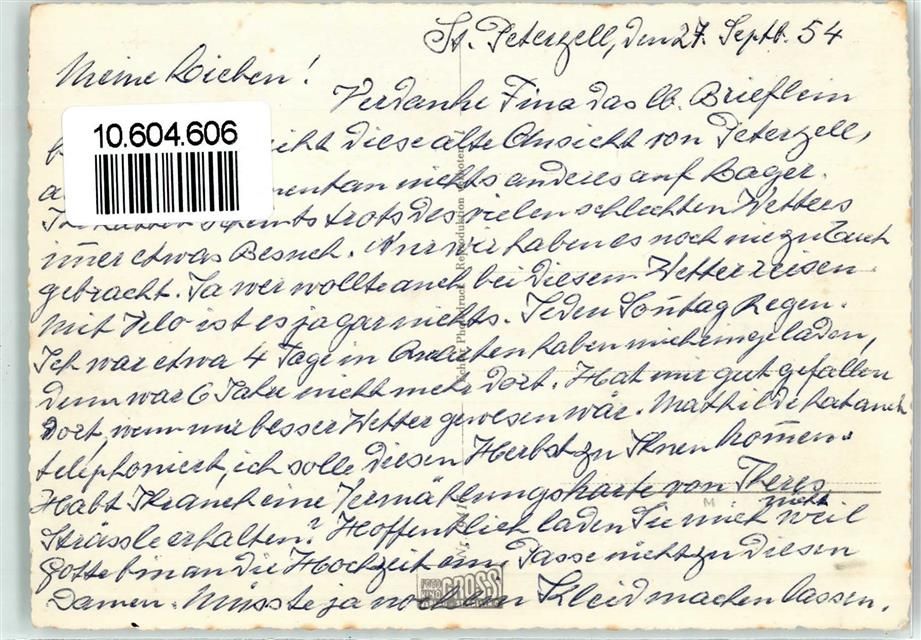 St. Peterzell, den 27. Septb. 54
Meine Lieben!
Verdanke Fina das lb. Brieflein
10.604.606
nicht diese alte Ansicht von Peterzell,
momentan nichts anderes auf Lager.
trots des vielen schlechten Wetters
im̄er etwas Besuch. Nur wir haben es noch nie zu Euch
gebracht. Ja wer wollte auch bei diesem Wetter reisen.
Mit Velo ist es ja gar nichts. Jeden Son̄tag Regen.
Ich war etwa 4 Tage in haben mich eingeladen,
denn war 6 Jahre nicht mehr dort. Hat mir gut gefallen
dort, wenn nur besser Wetter gewesen wär. Mathilde hat auch
telephoniert, ich solle diesen Herbst zu Ihnen kom̄en.
Habt Ihr auch eine Vermählungskarte von Theres
Strässle erhalten? Hoffentlich laden Sie mich nicht weil
Gotte bin an die Hochzeit ein. Passe nicht zu diesen
Damen. Müsste ja noch ein Kleid machen lassen.
Photodruck Reproduktion verboten
M
FOTO
GROSS